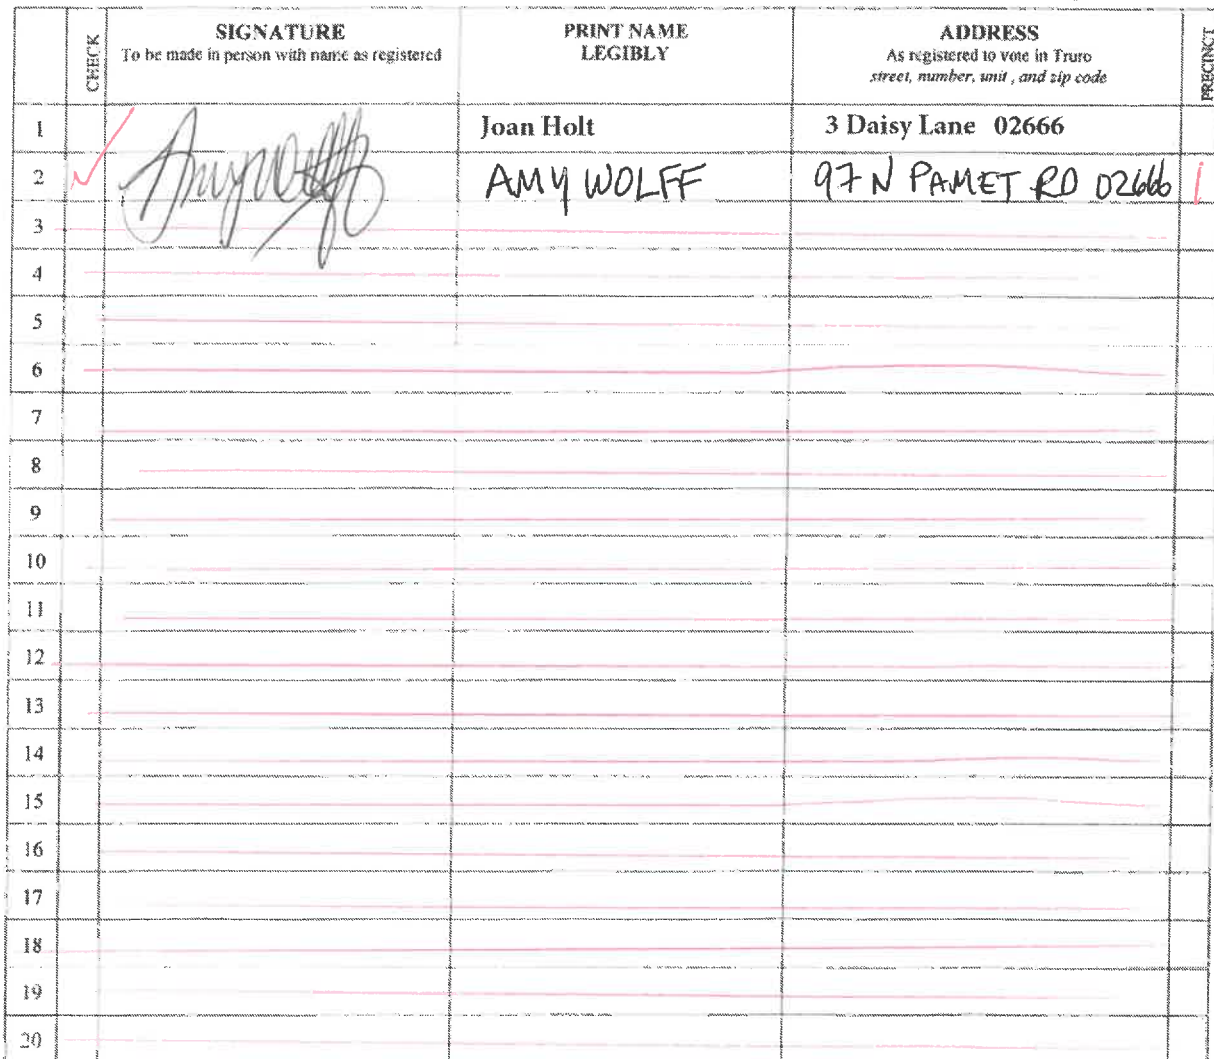 CHECK
SIGNATURE
To be made in person with name as registered
PRINT NAME
LEGIBLY
ADDRESS
As registered to vote in Truro
street, number, unit , and zip code
PRECINCT
1 Joan Holt 3 Daisy Lane 02666
2 Amy Wolff AMY WOLFF 97 N PAMET RD 02666 1
3
4
5
6
7
8
9
10
11
12
13
14
15
16
17
18
19
20